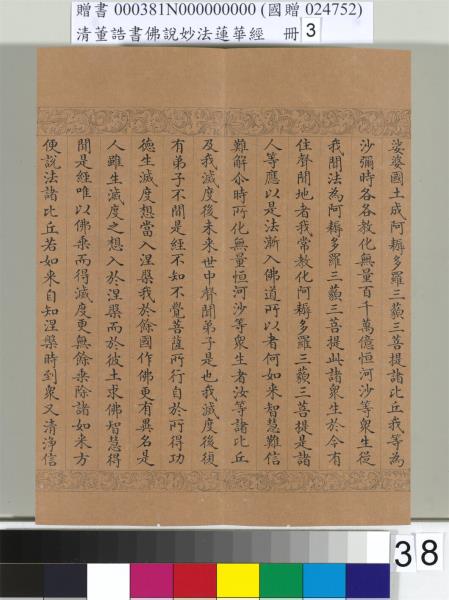 贈書 000381N000000000 (國贈 024752)
清董誥書佛說妙法蓮華經 冊 3
娑婆國土成阿耨多羅三藐三菩提諸比丘我等為
沙彌時各各教化無量百千萬億恒河沙等眾生從
我聞法為阿耨多羅三藐三菩提此諸眾生於今有
住聲聞地者我常教化阿耨多羅三藐三菩提是諸
人等應以是法漸入佛道所以者何如來智慧難信
難解尒時所化無量恒河沙等眾生者汝等諸比丘
及我滅度後未來世中聲聞弟子是也我滅度後復
有弟子不聞是經不知不覺菩薩所行自於所得功
德生滅度想當入涅槃我於餘國作佛更有異名是
人雖生滅度之想入於涅槃而於彼土求佛智慧得
聞是經唯以佛乘而得滅度更無餘乘除諸如來方
便說法諸比丘若如來自知涅槃時到眾又清淨信
38